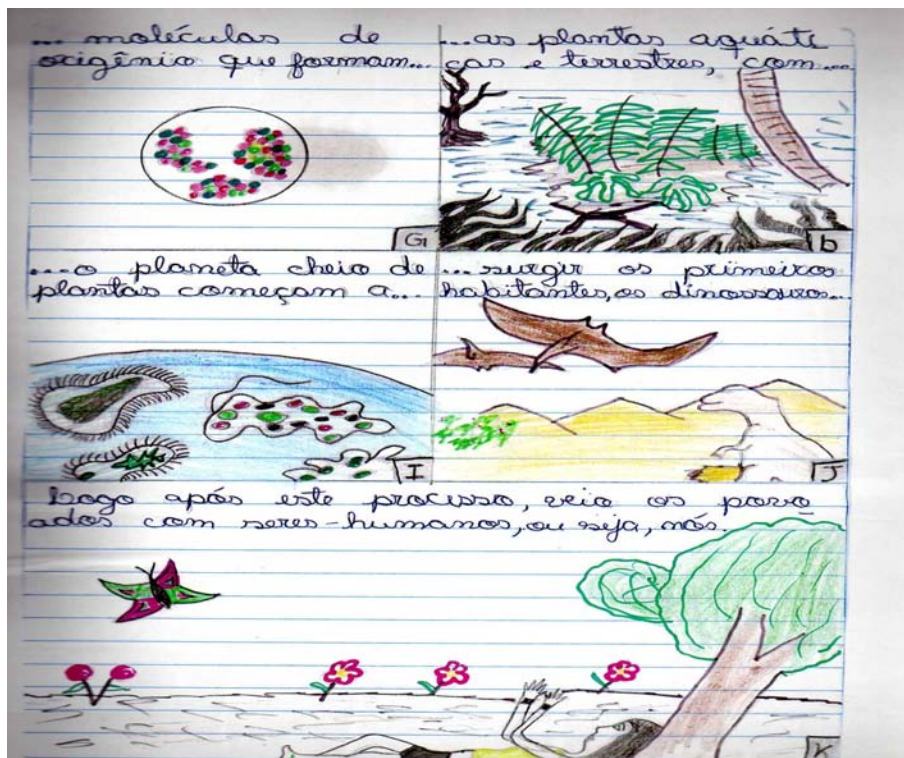 ... moléculas de
origênio que formam...
G
...as plantas aquáti
cas e terrestres, com...
b
...o planeta cheio de
plantas começam a...
I
...surgir os primeiros
habitantes, os dinossauros...
J
Logo após este processo, veio os povo
ados com seres-humanos, ou seja, nós.
K